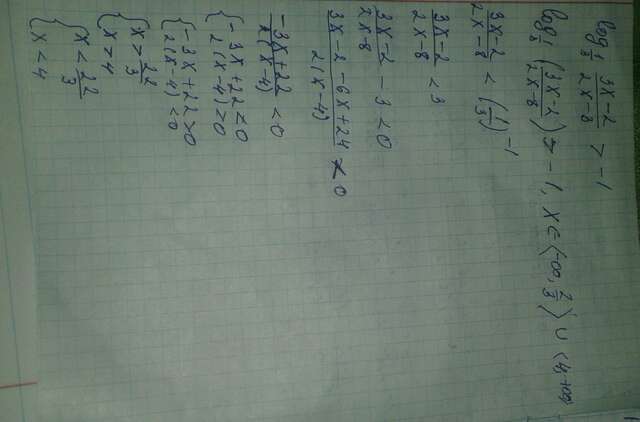 log 1/3 (3x-2)/(2x-8) > -1
log 1/3 ((3x-2)/(2x-8)) > -1, x ∈ ⟨-∞, 2/3⟩ ∪ ⟨4, +∞⟩
(3x-2)/(2x-8) < (1/3)^-1
(3x-2)/(2x-8) < 3
(3x-2)/(2x-8) - 3 < 0
(3x-2-6x+24)/(2(x-4)) < 0
(-3x+22)/(2(x-4)) < 0
{ -3x+22 < 0
2(x-4) > 0
{ -3x+22 > 0
2(x-4) < 0
{ x > 22/3
x > 4
{ x < 22/3
x < 4